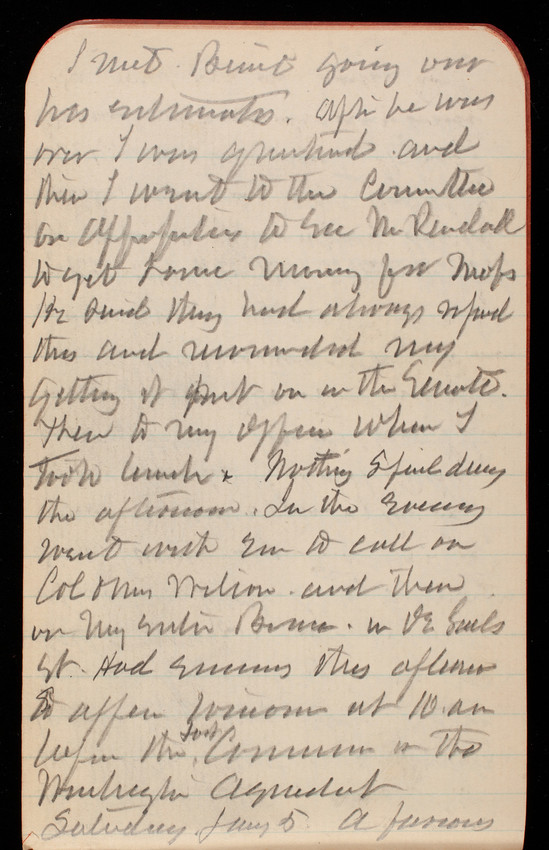 I met Bind going over
his estimates. After he was
over I was questioned and
then I went to the Committee
on Appropriations to see Mr Randall
to get some money for Maps
He said they had always refused
this and recommended my
getting it put on in the Senate.
Then to my office where I
took lunch & Nothing special during
the afternoon. In the evening
went with Em to call on
Col & Mrs Wilson and then
on My sister in De Sales
St. Had summons this afternoon
to appear tomorrow at 10 am
before the Joint Committee on the
Washington Aqueduct
Saturday Jany 5. A furious